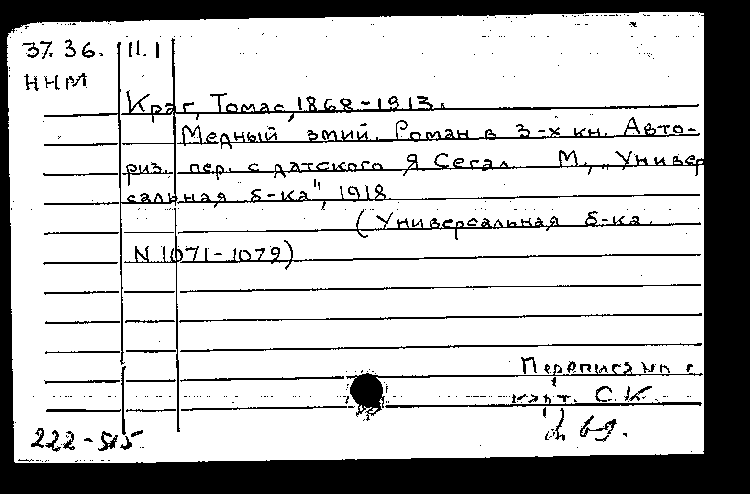 37.36. II.1
ННМ
Краг, Томас, 1868-1913.
Медный змий. Роман в 3-х кн. Авто-
риз. пер. с датского Я Сегал М., „Универ
сальная б-ка", 1918
(Универсальная б-ка.
N 1071-1079)
Переписано с
карт. С.К.
222-515